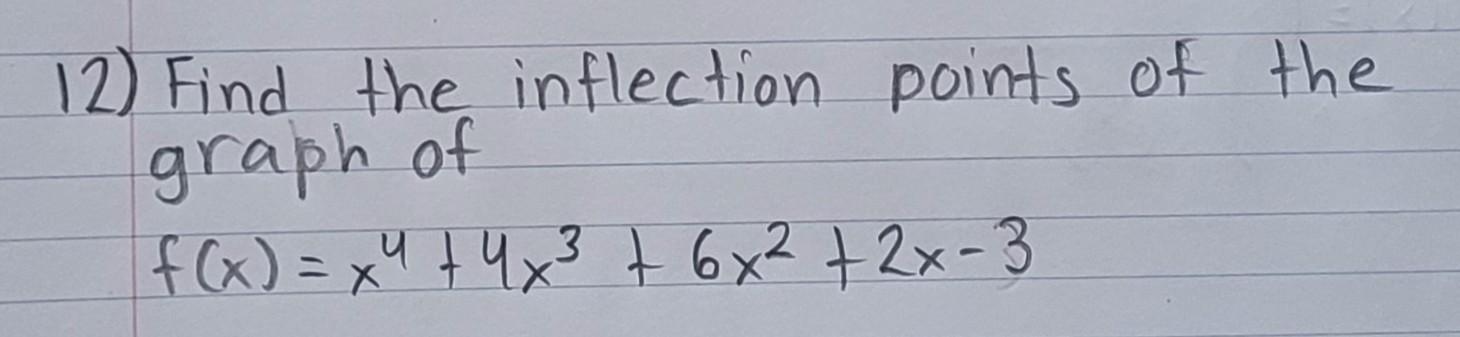 12) Find the inflection points of the
graph of
f(x) = x⁴ + 4x³ + 6x² + 2x - 3